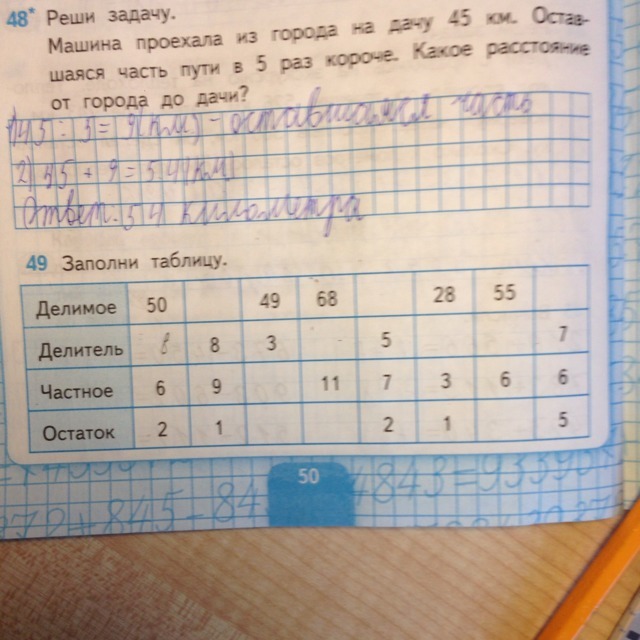 48* Реши задачу.
Машина проехала из города на дачу 45 км. Остав-
шаяся часть пути в 5 раз короче. Какое расстояние
от города до дачи?
= 9(км) - оставшаяся часть
2) 45 + 9 = 54(км)
Ответ. 54 километра
49 Заполни таблицу.
Делимое 50 49 68 28 55
Делитель 8 8 3 5 7
Частное 6 9 11 7 3 6 6
Остаток 2 1 2 1 5
50